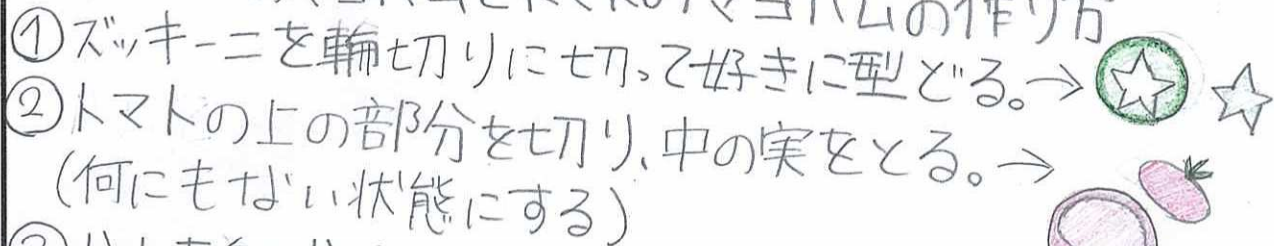 の作り方
①ズッキーニを輪切りに切って好きに型どる。→
②トマトの上の部分を切り、中の実をとる。→
(何にもない状態にする)